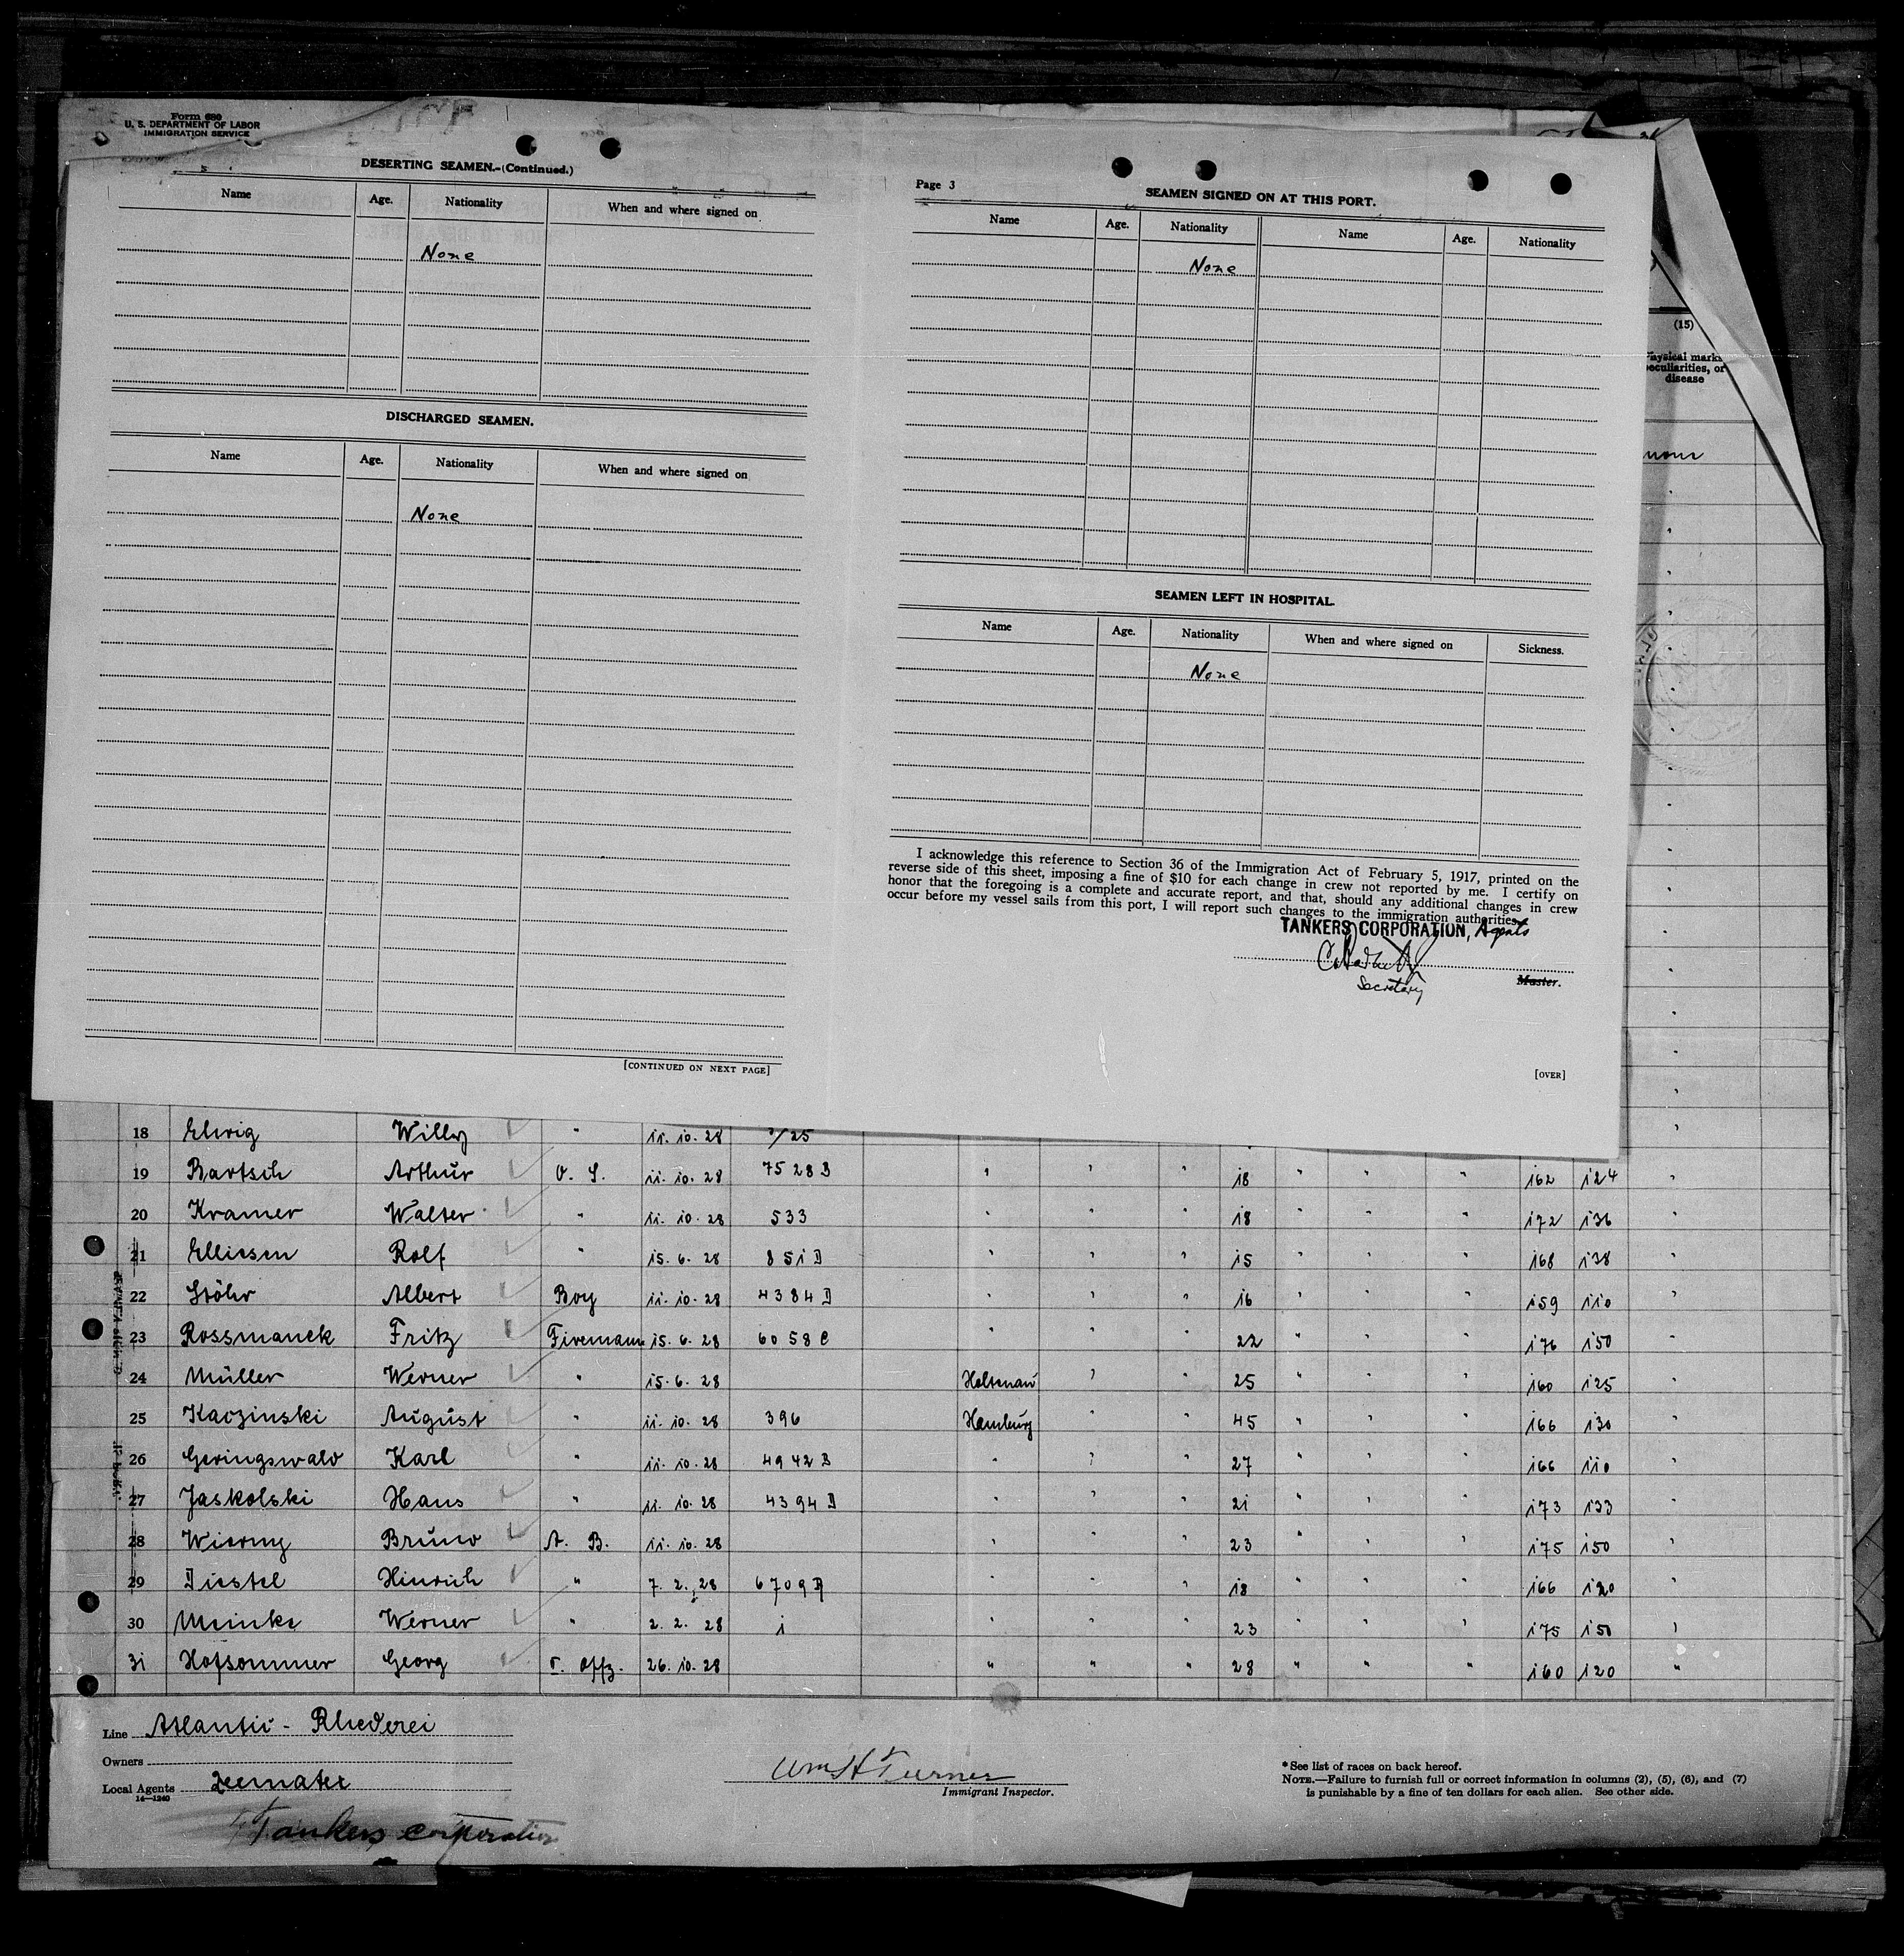 Form 680
U. S. DEPARTMENT OF LABOR
IMMIGRATION SERVICE
DESERTING SEAMEN.-(Continued.)
Name Age. Nationality When and where signed on
None
DISCHARGED SEAMEN.
Name Age. Nationality When and where signed on
None
[CONTINUED ON NEXT PAGE]
Page 3
SEAMEN SIGNED ON AT THIS PORT.
Name Age. Nationality Name Age. Nationality
None
SEAMEN LEFT IN HOSPITAL.
Name Age. Nationality When and where signed on Sickness.
None
I acknowledge this reference to Section 36 of the Immigration Act of February 5, 1917, printed on the
reverse side of this sheet, imposing a fine of $10 for each change in crew not reported by me. I certify on
honor that the foregoing is a complete and accurate report, and that, should any additional changes in crew
occur before my vessel sails from this port, I will report such changes to the immigration authorities.
TANKERS CORPORATION, Agents
Secretary
Master.
[OVER]
(15)
Physical marks,
peculiarities, or
disease
18 Elwig Willy " 11. 10. 28 /25
19 Bartsch Arthur O. S. 11. 10. 28 7528 B " " " 18 " " " 162 124 "
20 Kramer Walter " 11. 10. 28 533 " " " 18 " " " 172 136 "
21 Elliesen Rolf " 15. 6. 28 851 D " " " 15 " " " 168 138 "
22 Stöhr Albert Boy 11. 10. 28 4384 D " " " 16 " " " 159 110 "
23 Rossmanek Fritz Firemann 15. 6. 28 6058 C " " " 22 " " " 176 150 "
24 Müller Werner " 15. 6. 28 Holtenau " " 25 " " " 160 125 "
25 Kaczinski August " 11. 10. 28 396 Hamburg " " 45 " " " 166 130 "
26 Geringswald Karl " 11. 10. 28 4942 B " " " 27 " " " 166 110 "
27 Jaskolski Hans " 11. 10. 28 4394 D " " " 21 " " " 173 133 "
28 Wierny Bruno A. B. 11. 10. 28 " " " 23 " " " 175 150 "
29 Diestel Hinrich " 7. 2. 28 6709 D " " " 18 " " " 166 120 "
30 Meinke Werner " 2. 2. 28 1 " " " 23 " " " 175 150 "
31 Hofsommer Georg T. Offz. 26. 10. 28 " " " 28 " " " 160 120 "
Line Atlantic - Rhederei
Owners
Local Agents
14—1240
Tankers Corporation
Wm H Turner
Immigrant Inspector.
* See list of races on back hereof.
NOTE.—Failure to furnish full or correct information in columns (2), (5), (6), and (7)
is punishable by a fine of ten dollars for each alien. See other side.